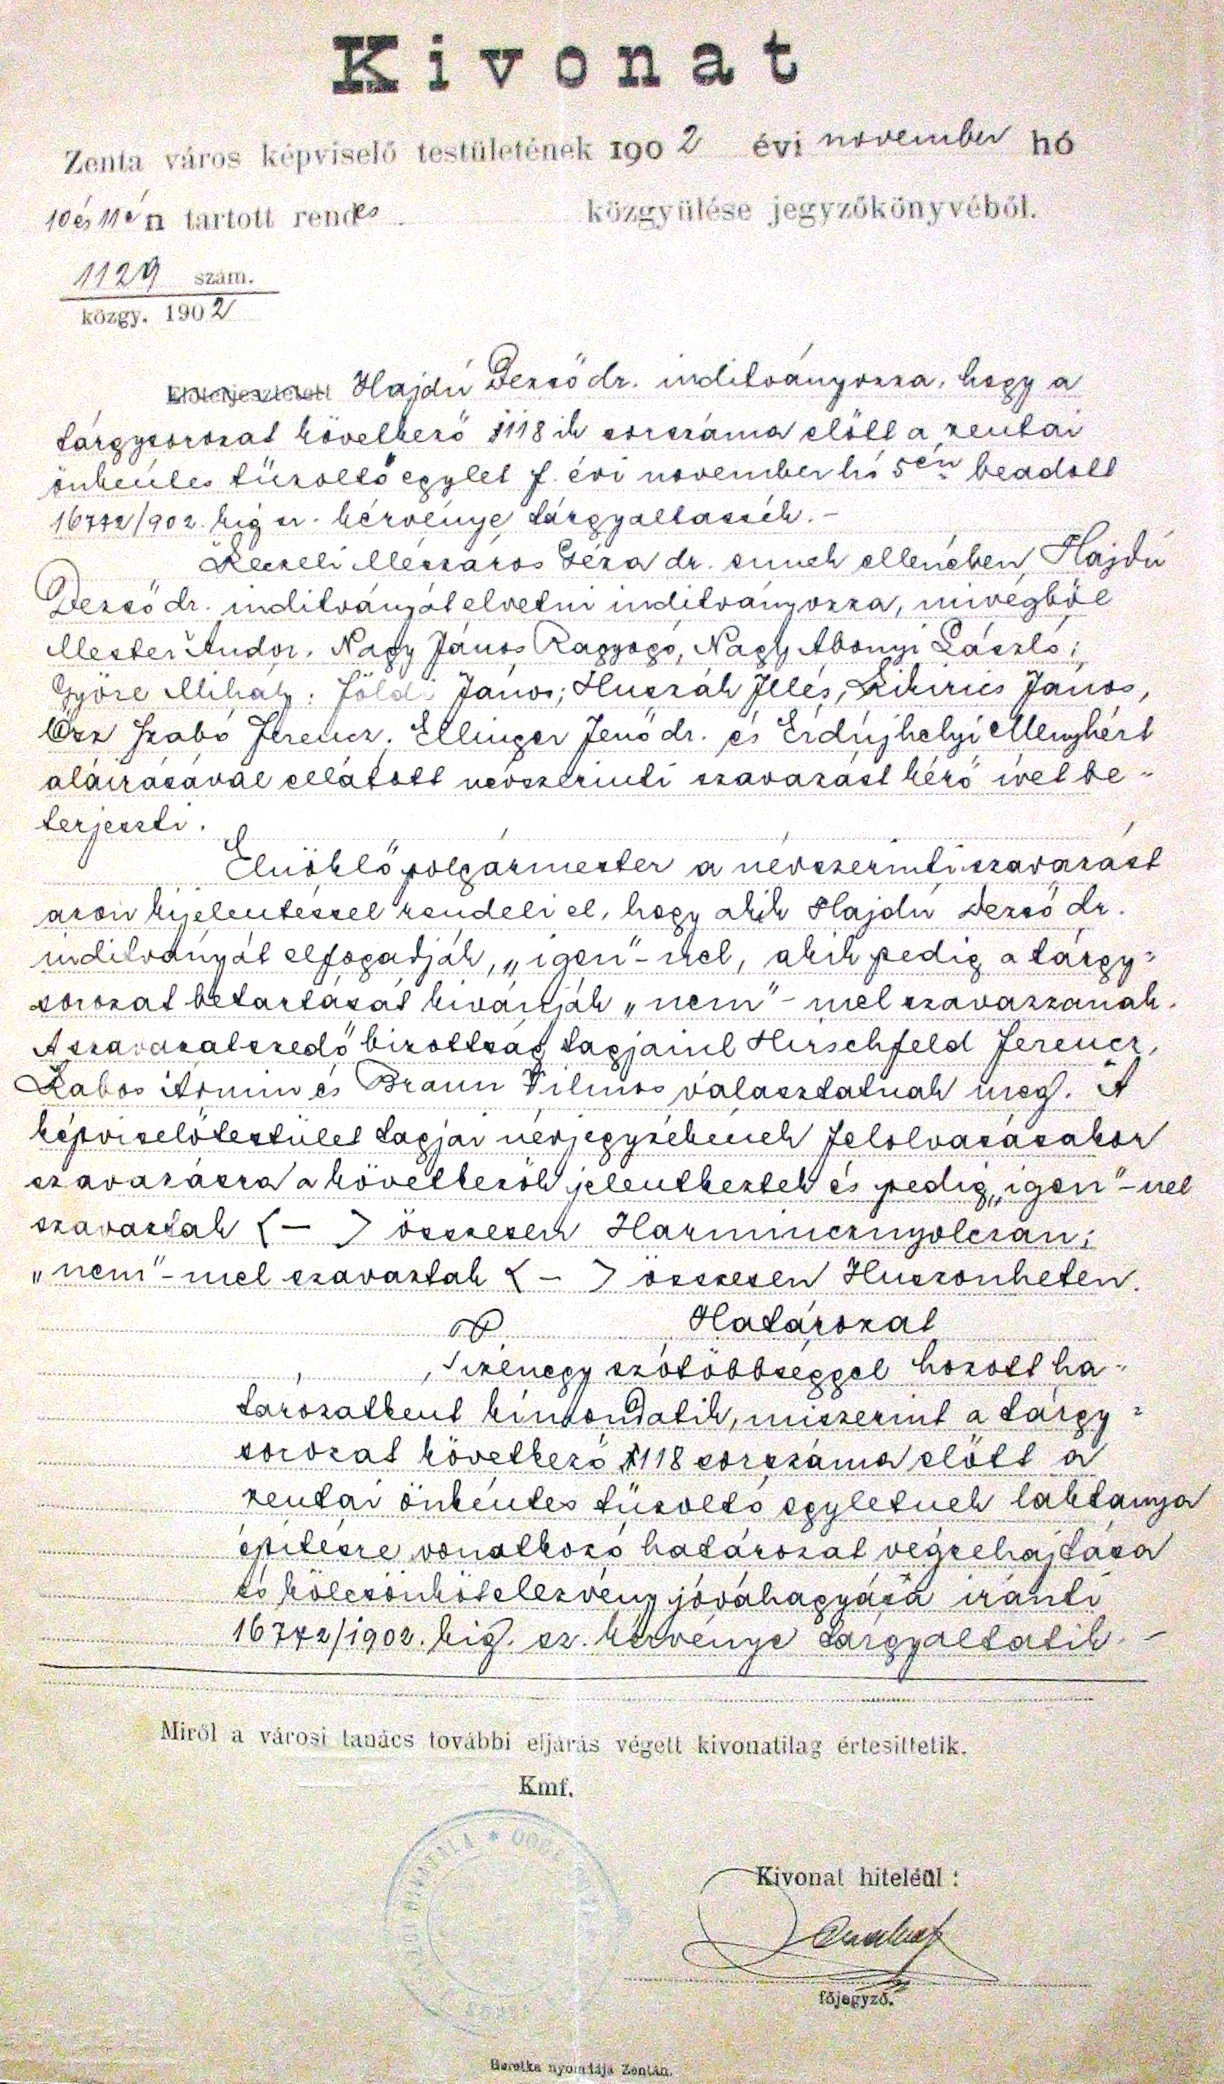 Kivonat
Zenta város képviselő testületének 1902 évi november hó
10 és 11én tartott rendes közgyülése jegyzőkönyvéből.
1129 szám.
közgy. 1902
Előterjesztetett Hajdú Dezső dr. inditványozza, hogy a
tárgysorozat következő 1118 ik sorszáma előtt a zentai
önkéntes tűzoltó egylet f. évi november hó 5én beadott
16772/902. kig sz. kérvénye tárgyaltassék. –
Kecseli Mészáros Géza dr. ennek ellenében Hajdú
Dezső dr. inditványát elvetni inditványozza, mivégből
Mester Andor, Nagy János Ragyogó, Nagy Abonyi László;
Győze Mihály, Földi János; Huszák Illés, Kikirics János,
Ősz Szabó Ferencz, Ellinger Jenő dr. és Erdújhelyi Menyhért
aláirásával ellátott névszerinti szavazást kérő ivet be-
terjeszti.
Elnöklő polgármester a névszerinti szavazást
azon kijelentéssel rendeli el, hogy akik Hajdú Dezső dr.
inditványát elfogadják, „igen"-nel, akik pedig a tárgy-
sorozat betartását kivánják „nem"-mel szavazzanak.
A szavazatszedő bizottság tagjaiul Hirschfeld Ferencz,
Kabos Ármin és Braun Vilmos választatnak meg. A
képviselőtestület tagjai névjegyzékének felolvasásakor
szavazásra a következők jelentkeztek és pedig „igen"-nel
szavaztak < – > összesen Harmincznyolczan;
„nem"-mel szavaztak < – > összesen Huszonheten.
Határozat
Tizenegy szótöbbséggel hozott ha-
tarozatkent kimondatik, miszerint a tárgy-
sorozat következő 1118 sorszáma előtt a
zentai önkéntes tűzoltó egyletnek laktanya
épitésre vonatkozó határozat végrehajtása
és kölcsönkötelezvény jóváhagyása iránti
16772/1902. kig. sz. kérvénye tárgyaltatik. –
Miről a városi tanács további eljárás végett kivonatilag értesittetik.
Kmf.
Kivonat hiteléül:
főjegyző.
Beretka nyomdája Zentán.